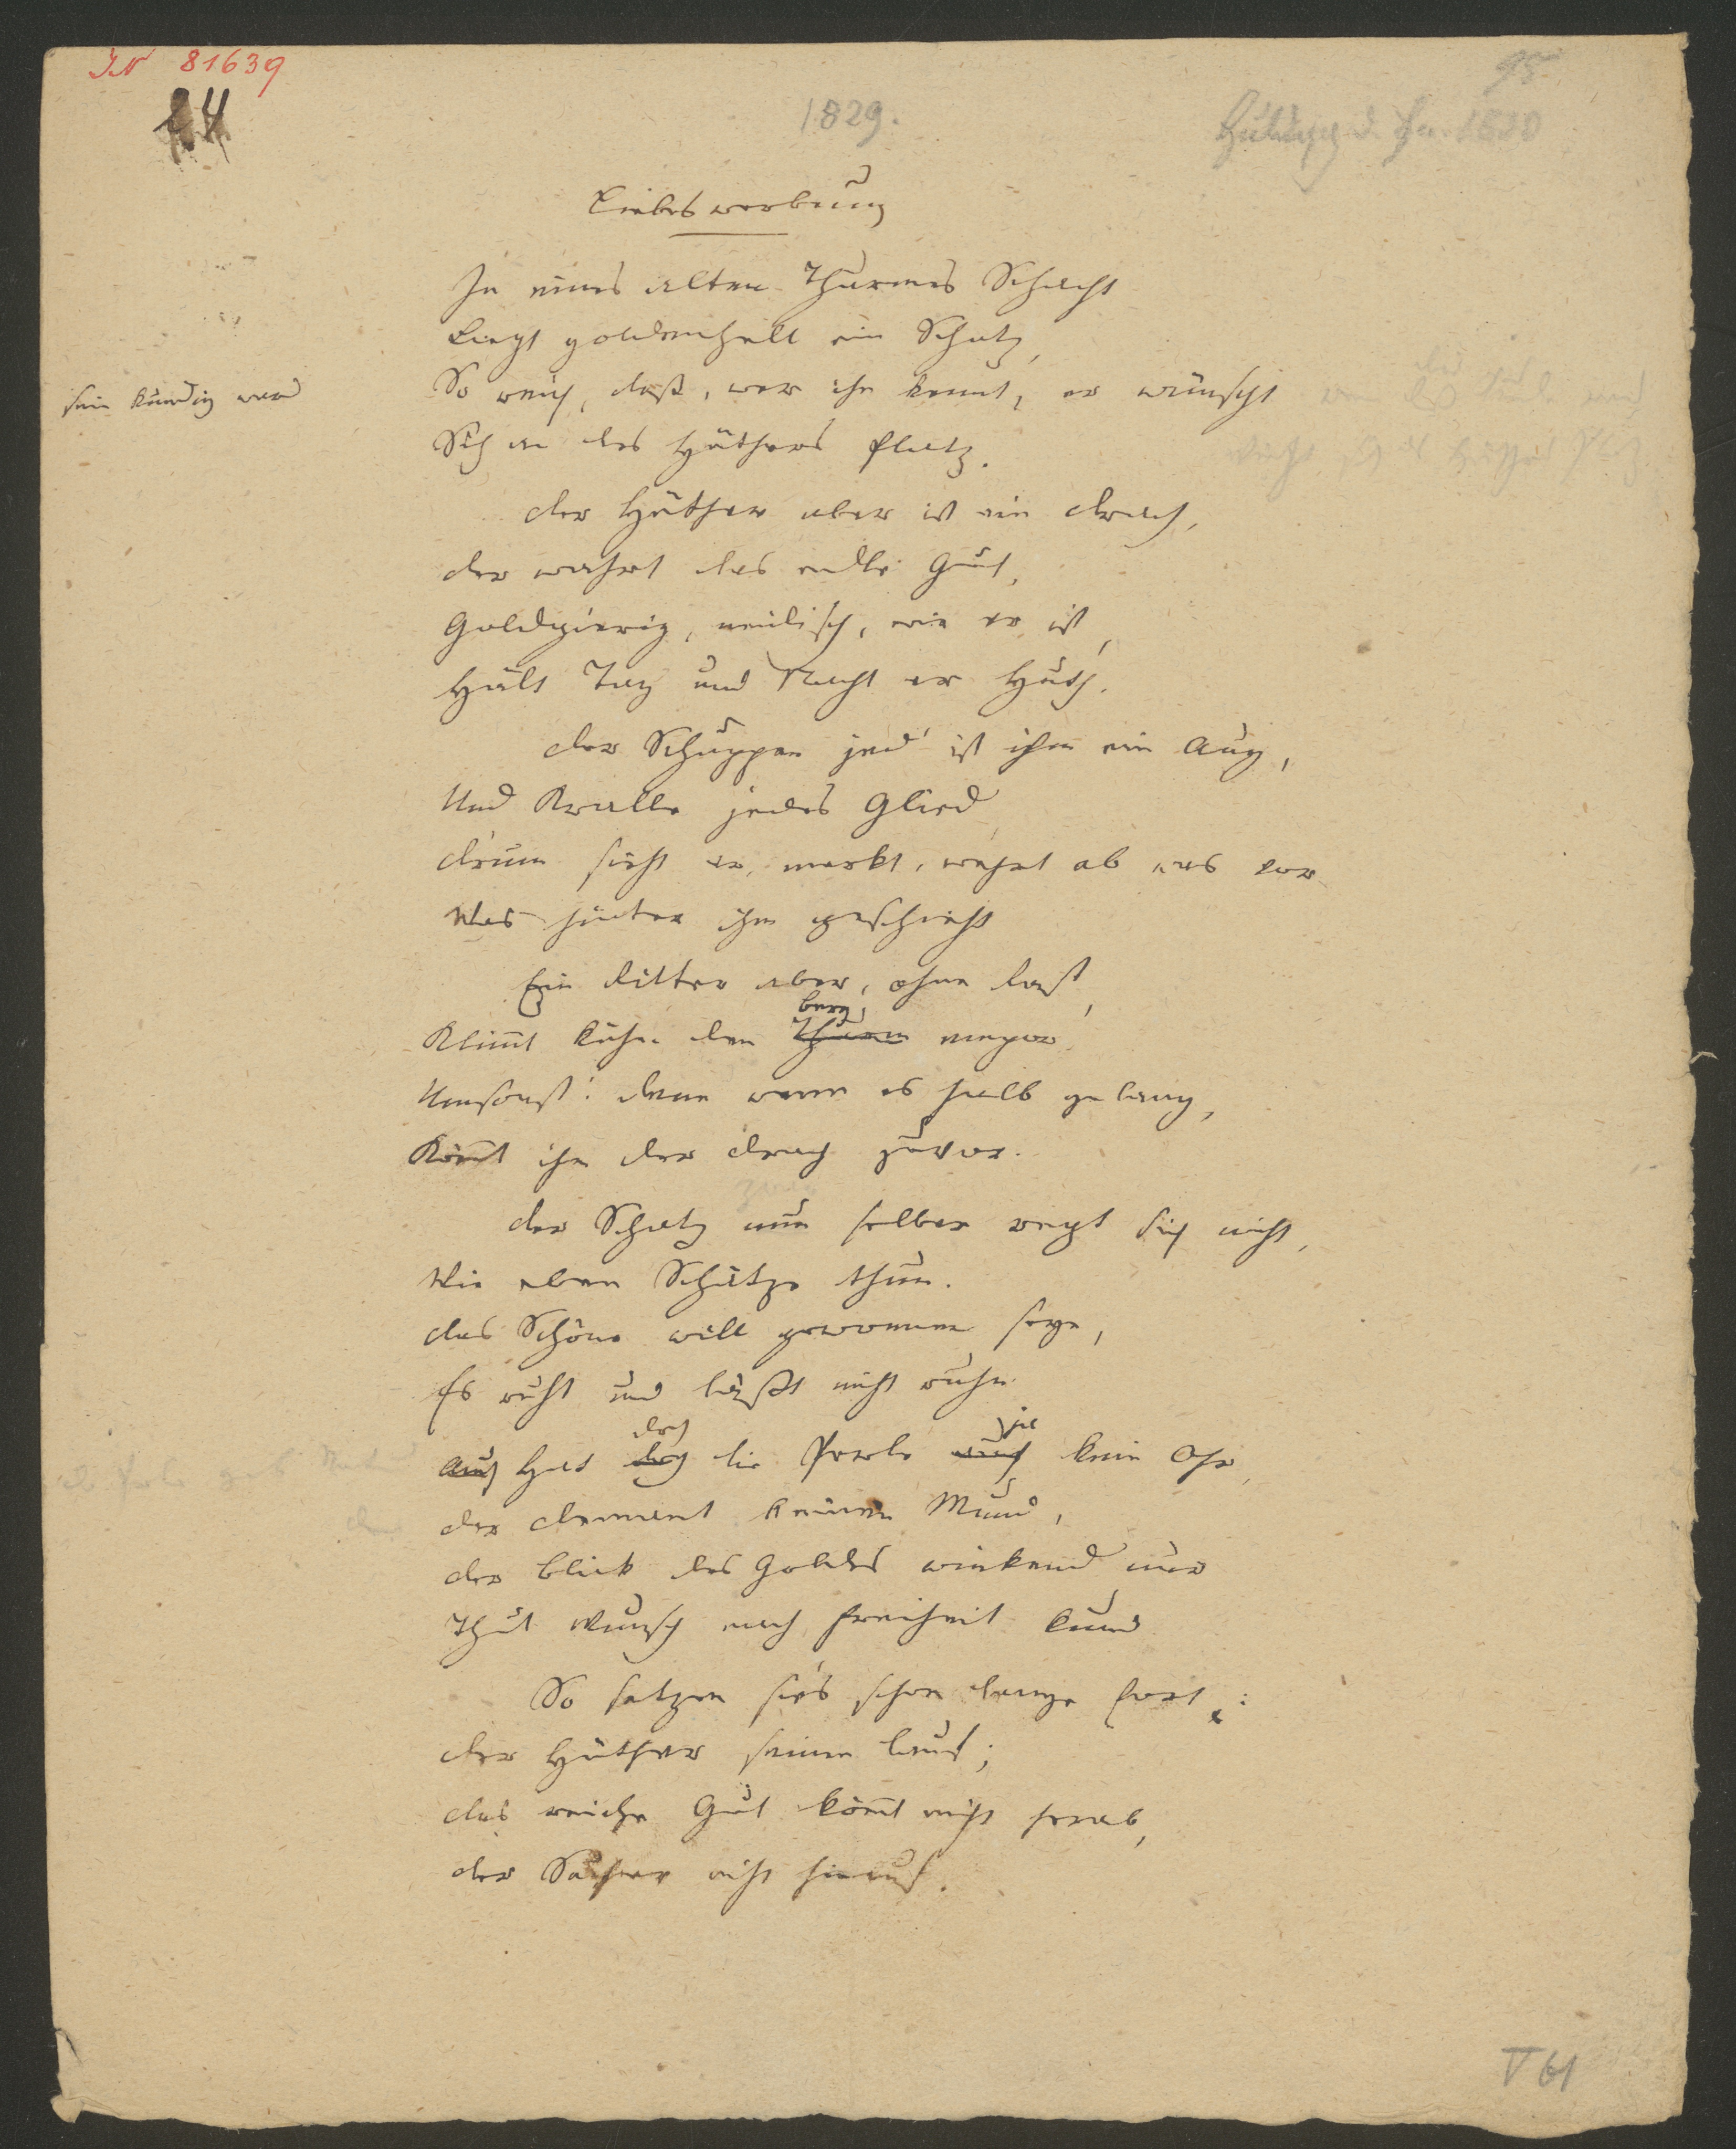 IN 81639
44
95
1829.
Huldigg d. Fr. 1830
Liebeswerbung
In eines alten Thurmes Schacht
Liegt goldenhell ein Schatz,
So reich, daß, wer ihn kennt, er wünscht
sein kundig ward
Sich an des Hüthers Platz.
der Hüther aber ist ein Drach,
der wahrt das edle Gut,
Goldgierig, neidisch, wie er ist,
Hält Tag und Nacht er Huth.
der Schuppen jed' ist ihm ein Aug,
Und Kralle jedes Glied
drum sieht er, merkt, wehrt ab was vor
Was hinter ihm geschieht
Ein Ritter aber, ohne Rast,
Berg
Klim̄t kühn den Thurm empor
Umsonst! denn wenn es halb gelang,
Köm̄t ihm der Drach zuvor.
der Schatz nun selber regt sich nicht,
Wie eben Schätze thun.
das Schöne will gewonnen seyn,
Es ruht und läßt nicht ruhn
doch ja
Auch Hat doch die Perle auch kein Ohr,
der Demant keinen Mund,
der Blick des Goldes winkend nur
Thut Wunsch nach Freiheit kund
So setzen sie's schon lange fort:
der Hüther seinen Lauf;
das reiche Gut köm̄t nicht herab,
der Sucher nicht hinauf.
V 61